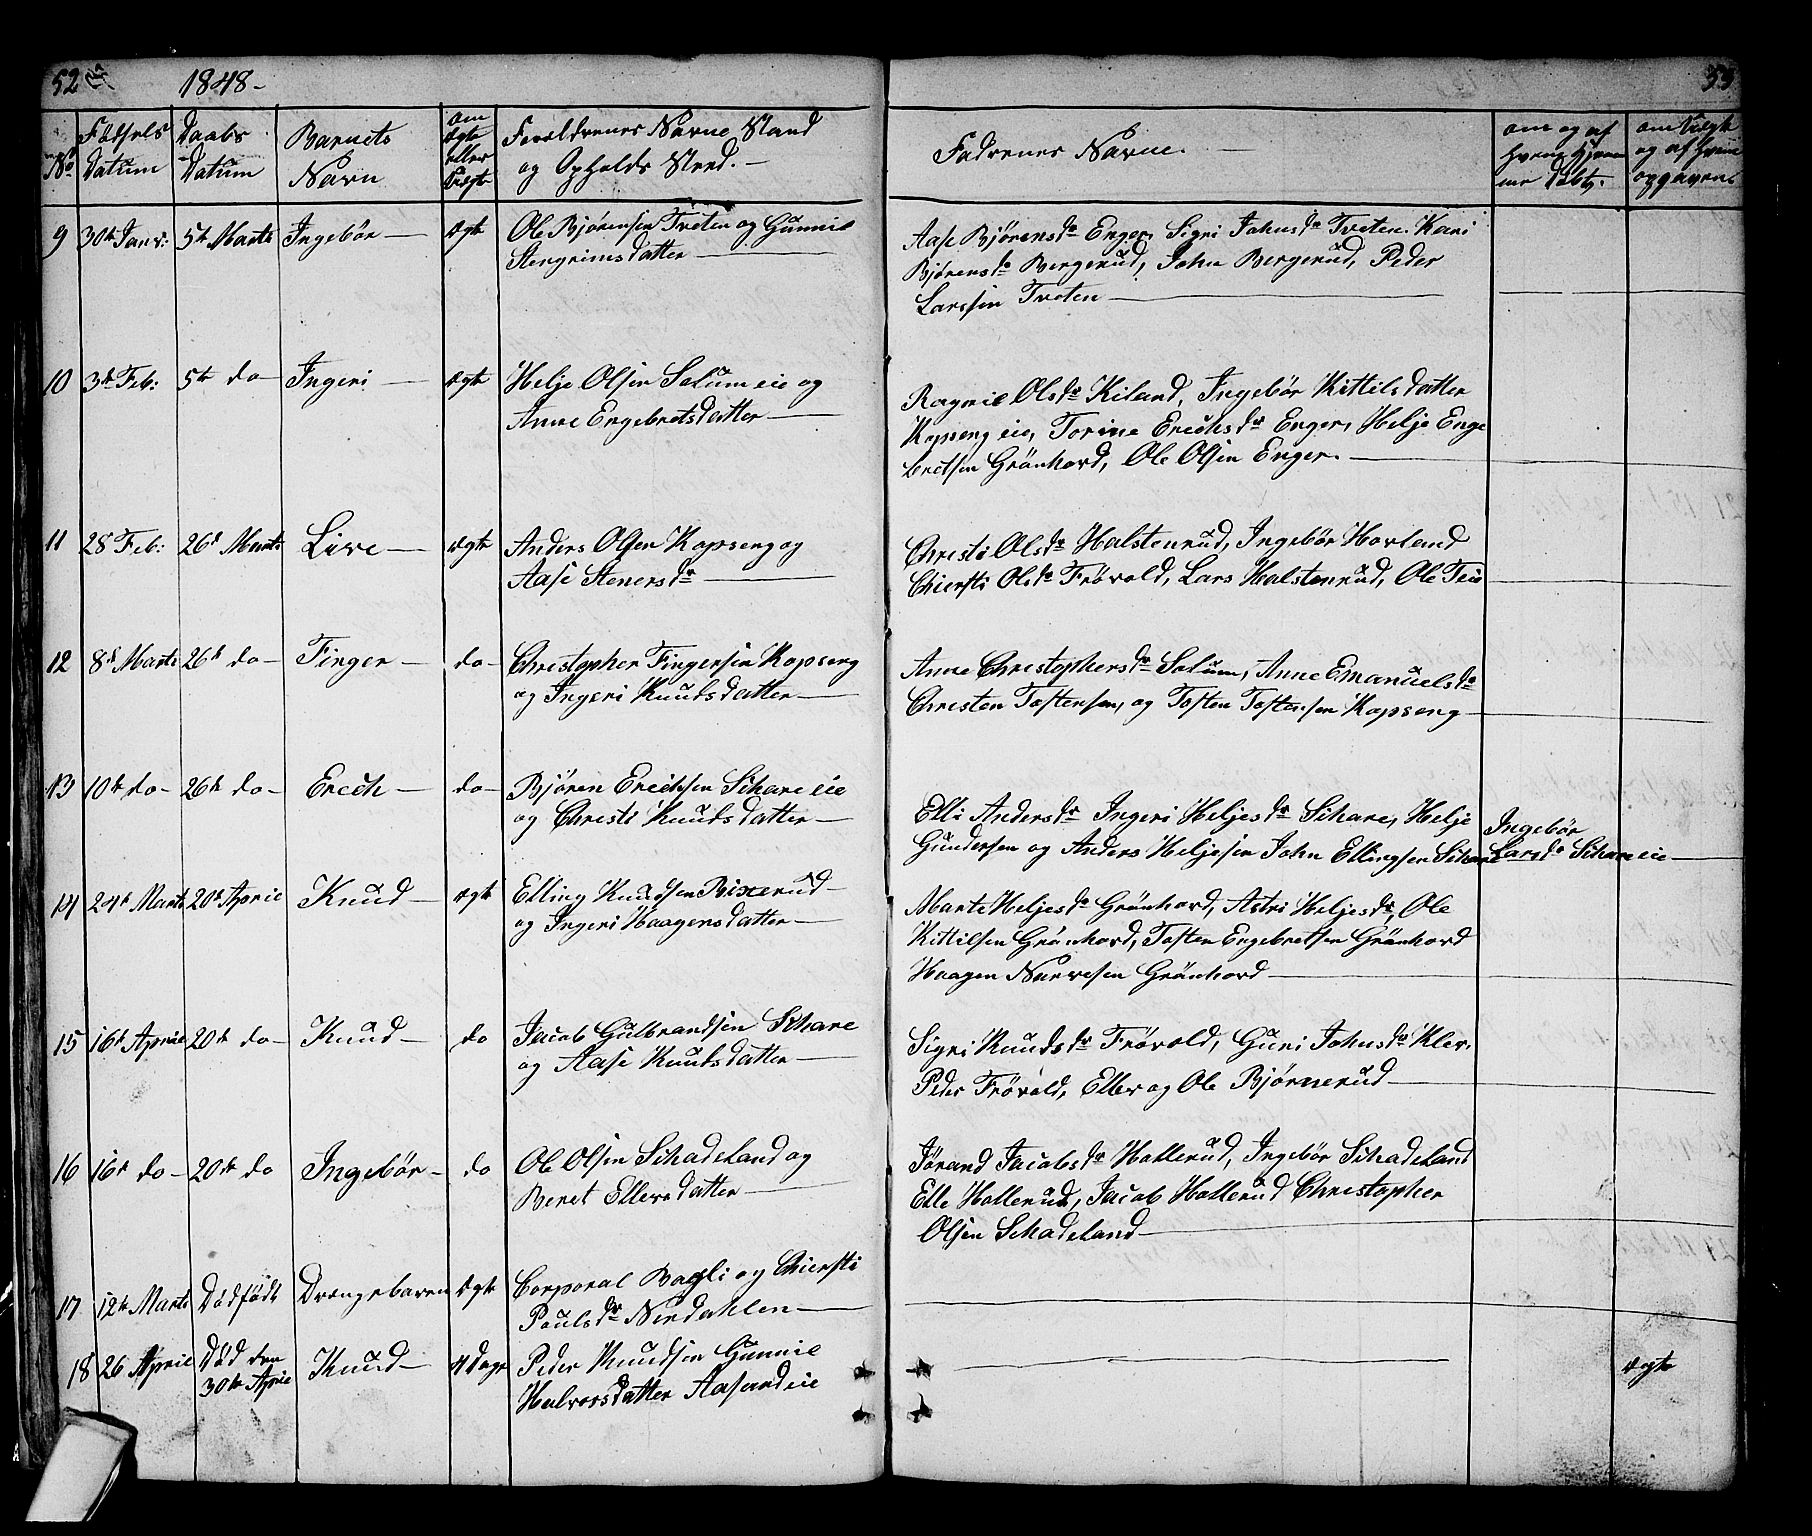 52
1848-
53
No
Fødsels Datum
Daabs Datum
Barnets Navn
om Ægte eller Uægte
Forældrenes Navne Stand og Opholds Sted.-
Faddrenes Navne.-
om og af hvem Hjemme døbt.
om Uægte og af hvem opgaven
9 30te Janv: 5te Marts Ingebör- Ægte Ole Bjørensen Tveten og Gunnil
Stengrimsdatter-
Aase Bjørensdr Enger, Sigri Johnsdr Tveten. Kari
Bjørensdr Bergerud, John Bergerud, Peder
Larssen Tveten-
10 3de Feb: 5te do- Ingeri- Ægte Helje Olsen Solum eie og
Anne Engebretsdatter-
Ragnil Olsdr Kiland, Ingebör Kittilsdatter
Kopseng eie, Torine Erichsdr Enger, Helje Enge
bretsen Grönhovd, Ole Olsen Enger.-
11 28 Feb: 26de Marts Live- Ægte Anders Olsen Kopseng og
Aase Stenersdr-
Christi Olsdr Halstenrud, Ingebör Hovland
Chiersti Olsdr Frövold, Lars Halstenrud, Ole Teie
12 8de Marts 26de do- Finger- do- Christopher Fingersen Kopseng
og Ingeri Knudsdatter-
Anne Christophersdr Solum, Anne Emanuelsdr
Christen Tostensen, og Tosten Tostensen Kopseng-
13 10de do- 26de do- Erich- do- Björen Erichsen Skare eie
og Christi Knudsdatter-
Elli Andersdr Ingeri Heljesdr Skare, Helje
Gundersen og Anders Heljesen John Ellingsen Skare
Ingebör
Larsdr Skare eie-
14 24de Marts 20de April Knud- Ægte Elling Knudsen Bixerud-
og Ingeri Haagensdatter-
Marte Heljesdr Grönhovd, Astri Heljesdr, Ole
Kittilsen Grönhovd, Tosten Engebretsen Grönhovd
Haagen Narvesen Grönhovd-
15 16de April 20de do- Knud- do Jacob Gulbrandsen Skare
og Aase Knudsdatter-
Sigri Knudsdr Frövold, Guri Johnsdr Klev.
Peder Frövold, Ellev og Ole Bjørnerud-
16 16de do- 20de do Ingebör- do Ole Olsen Skadeland og
Beret Ellevsdatter-
Jørand Jacobsdr Hallerud, Ingebör Skadeland
Elle Hallerud, Jacob Hallerud Christopher
Olsen Skadeland-
17 12te Marts Dödfödt Drængebaren Ægte Corporal Bagli og Chiersti
Paulsdr Nerdahlen-
18 26 April Död den 30te April Knud- 4 Dage Peder Knudsen Gunnil
Halvorsdatter Aasland eie
Ægte